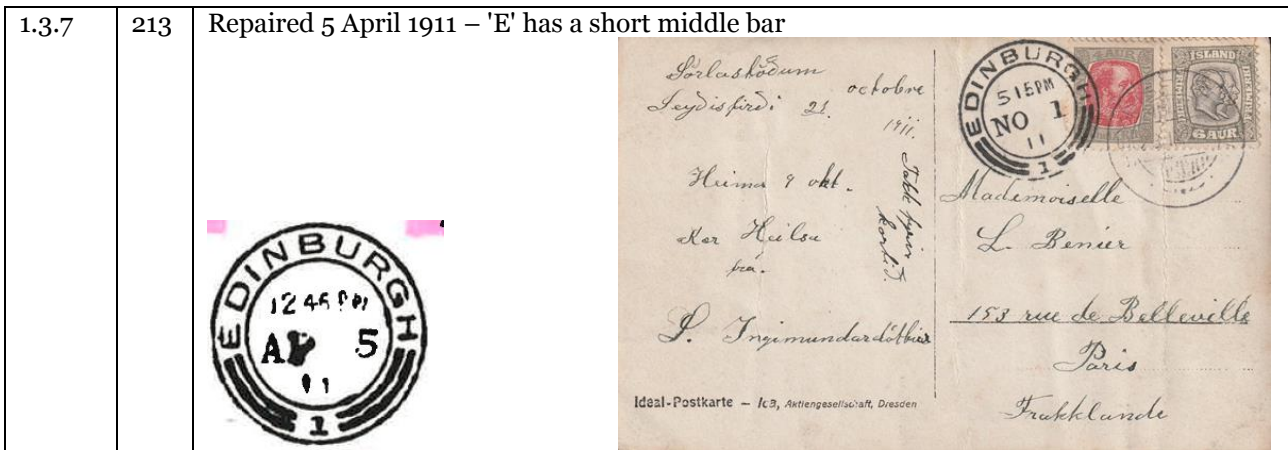 1.3.7
213
Repaired 5 April 1911 – 'E' has a short middle bar
EDINBURGH
12 45 PM
AP 5
11
1
Seydisfirdi 21. octobre
1911.
Heima 9 okt.
Kær Heilsa
frá.
S. Ingimundardóttir
Takk fyrir
kortid.
Ideal-Postkarte – ICB, Aktiengesellschaft, Dresden
EDINBURGH
5 15 PM
NO 1
11
1
4 AUR
ISLAND
6 AUR
Mademoiselle
L. Benier
153 rue de Belleville
Paris
Frakklande